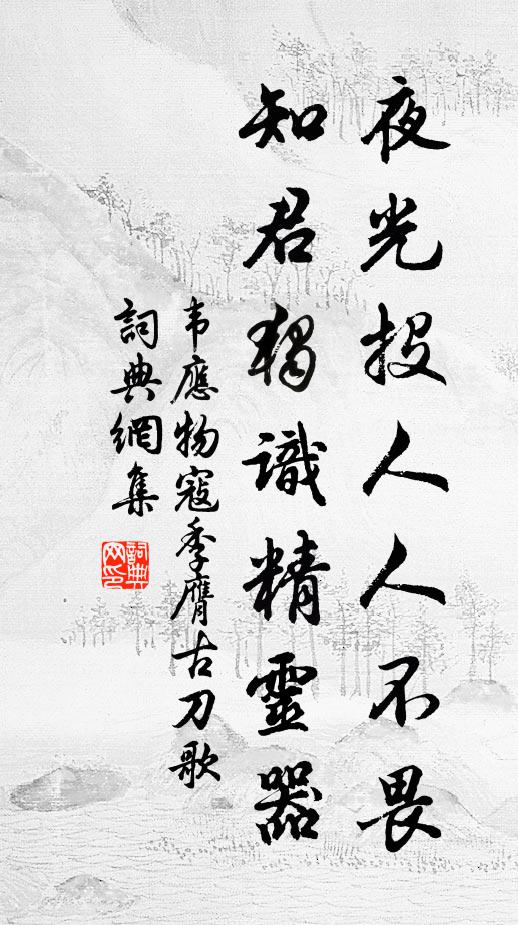 夜光投人人不畏
知君獨識精靈器
韦應物寇季膺古刀歌
詞典網集
詞典网印